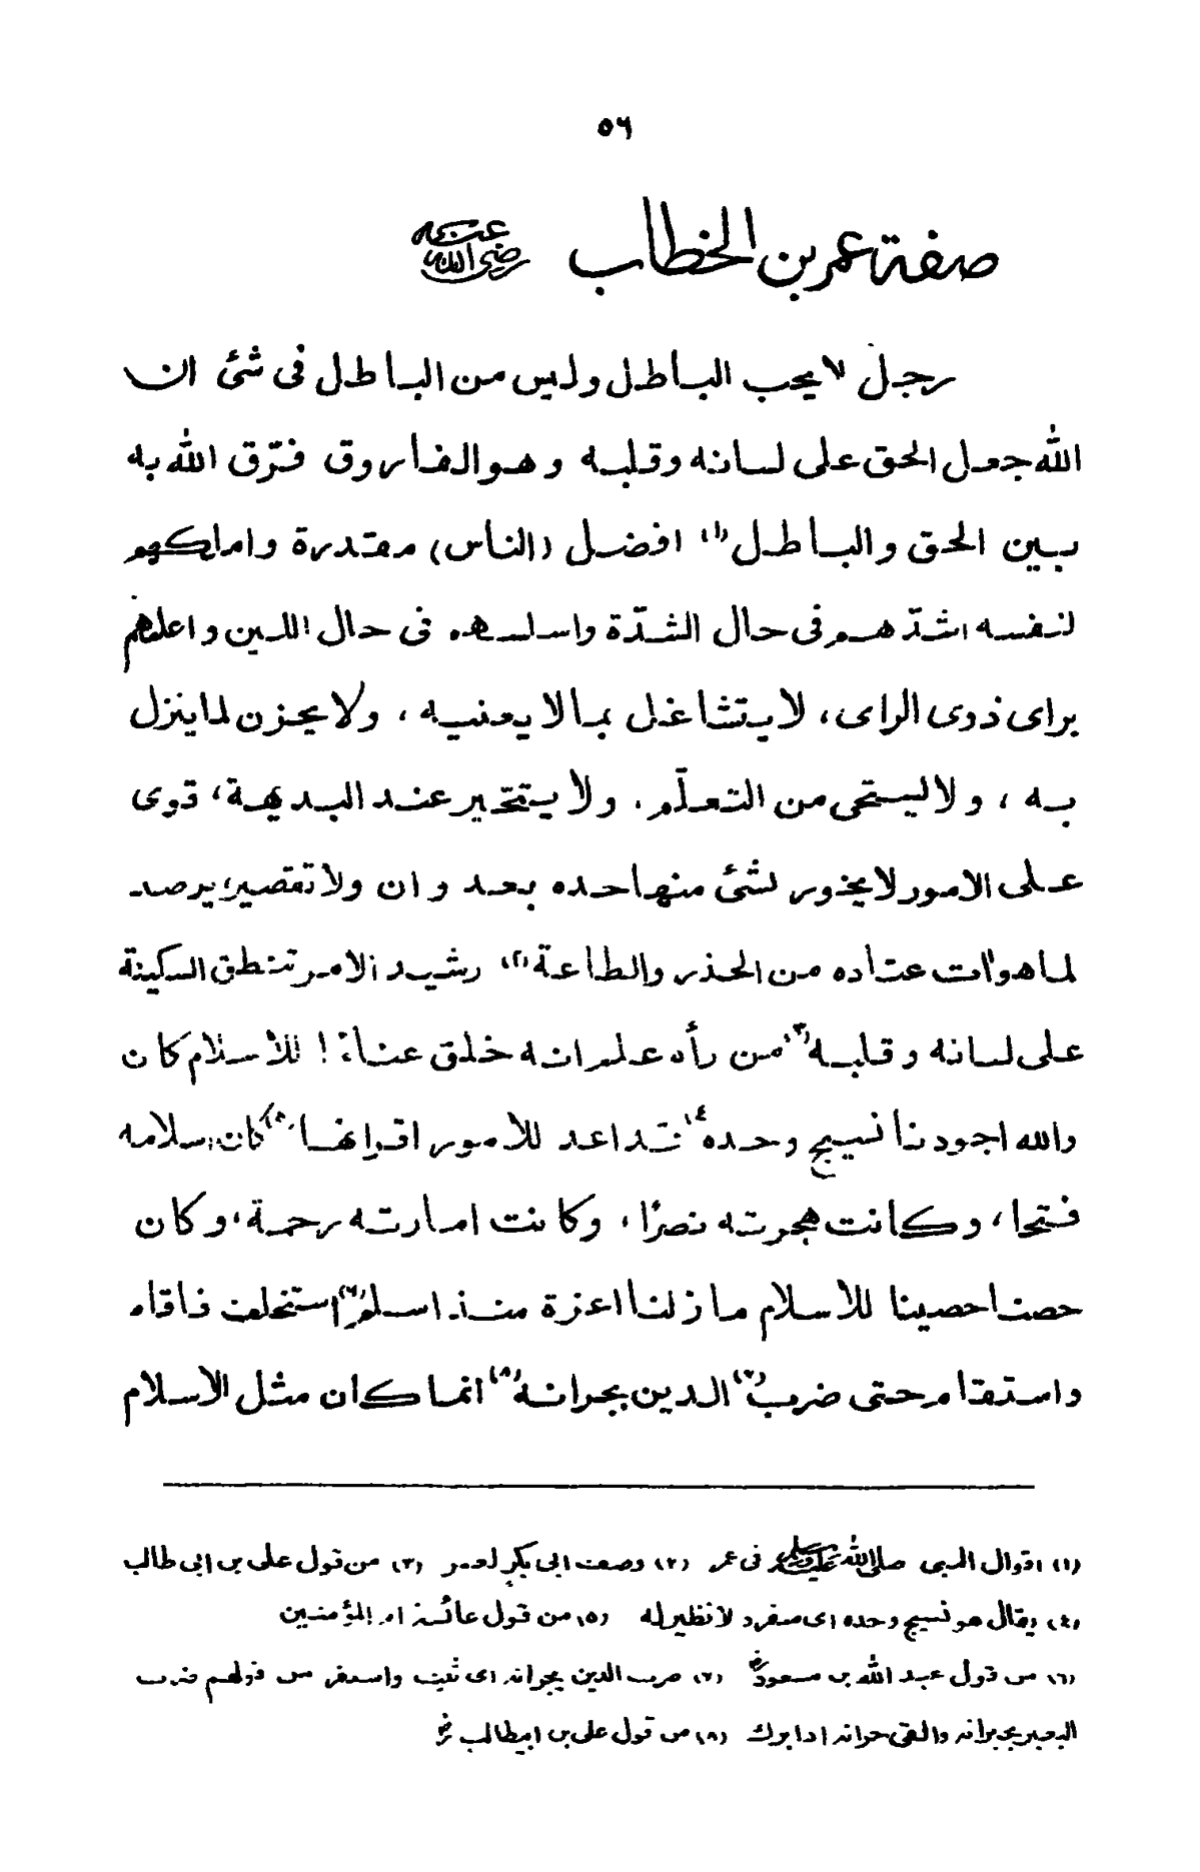 ٥٦
صفة عمر بن الخطاب رضي الله عنه
رجل لا يحب الباطل وليس من الباطل فى شئ ان
الله جعل الحق على لسانه وقلبه وهو الفاروق فرّق الله به
بين الحق والباطل (١) افضل (الناس) مقدرة واملكهم
لنفسه اشدّهم فى حال الشدّة واسلسهم فى حال اللين واعلمهم
براى ذوى الراى، لا يتشاغل بما لا يعنيه، ولا يحزن لما ينزل
به، ولا ليستحى من التعلّم. ولا يتحّير عند البديهة، قوى
على الامور لا يخور لشئ منها حده بعد وان ولا تقصير؛ يرصد
لما هوات عتاده من الحذر والطاعة (٢) رشيد الامر تنطق السكينة
على لسانه وقلبه (٣) من رأه علم انه خلق عناءً ! للاسلام كان
والله اجودنا نسيج وحده (٤) قد اعد للامور اقرانها (٥) كان اسلامه
فتحا، وكانت هجرته نصرًا، وكانت امارته رحمة، وكان
حصنا حصينا للاسلام ما زلنا اعزة منذ اسلم (٦) استخلف فاقام
واستقام حتى ضرب (٧) الدين بجرانه (٨) انما كان مثل الاسلام
(١) اقوال النبى صلى الله عليه وسلم فى عمر (٢) وصف ابى بكر لعمر (٣) من قول على بن ابى طالب
(٤) يقال هو نسيج وحده اى منفرد لا نظير له (٥) من قول عائشة ام المؤمنين
(٦) من قول عبد الله بن مسعود رض (٧) ضرب الدين بجرانه اى ثبت واستقر من قولهم ضرب
البعير بجرانه والقى جرانه اذا برك (٨) من قول على بن ابيطالب رض